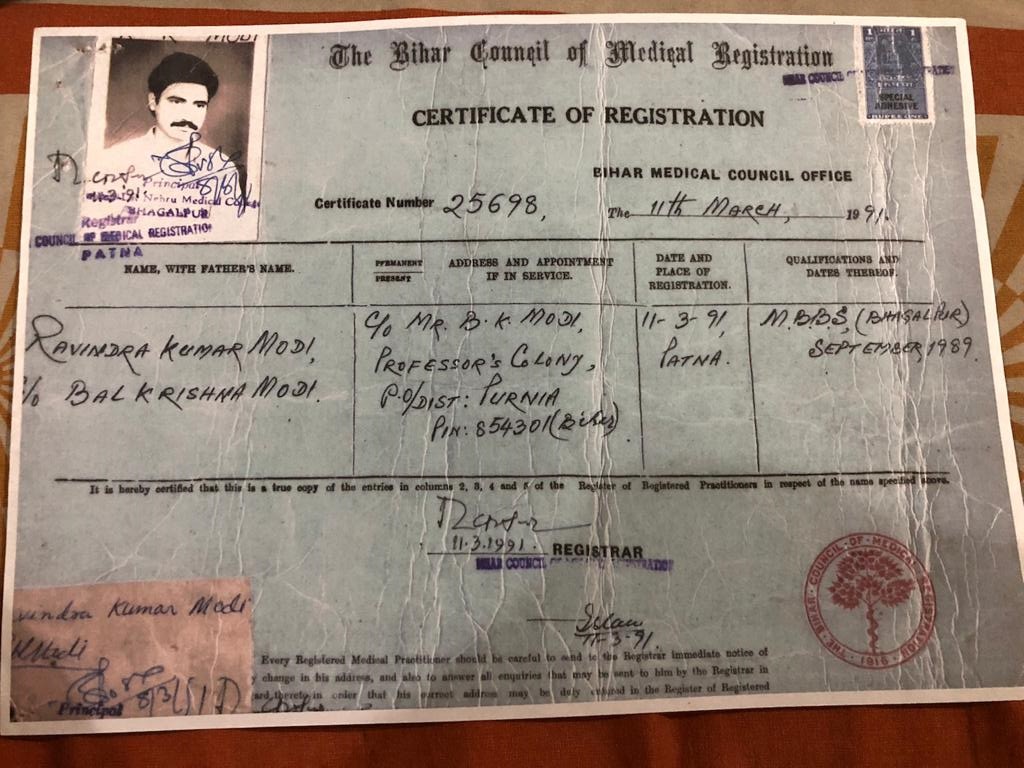 The Bihar Council of Medical Registration
CERTIFICATE OF REGISTRATION
SPECIAL
ADHESIVE
RUPEE ONE
BIHAR MEDICAL COUNCIL OFFICE
Certificate Number 25698, The 11th MARCH, 1991.
11-3-91 Principal
Nehru Medical
BHAGALPUR
Registrar
COUNCIL OF MEDICAL REGISTRATION
PATNA
NAME, WITH FATHER'S NAME.
PERMANENT
PRESENT
ADDRESS AND APPOINTMENT
IF IN SERVICE.
DATE AND
PLACE OF
REGISTRATION.
QUALIFICATIONS AND
DATES THEREOF.
RAVINDRA KUMAR MODI,
S/o BAL KRISHNA MODI.
C/o MR. B. K. MODI,
PROFESSOR'S COLONY,
P.O/DIST: PURNIA
PIN: 854301 (Bihar)
11-3-91,
PATNA.
M.B.B.S, (BHAGALPUR)
SEPTEMBER, 1989.
It is hereby certified that this is a true copy of the entries in columns 2, 3, 4 and 5 of the Register of Registered Practitioners in respect of the name specified above.
11.3.1991. REGISTRAR
BIHAR COUNCIL OF
11-3-91
THE BIHAR COUNCIL OF MEDICAL REGISTRATION
1916
vindra Kumar Modi
Principal
Every Registered Medical Practitioner should be careful to send to the Registrar immediate notice of
change in his address, and also to answer all enquiries that may be sent to him by the Registrar in
ard thereto in order that his correct address may be duly entered in the Register of Registered